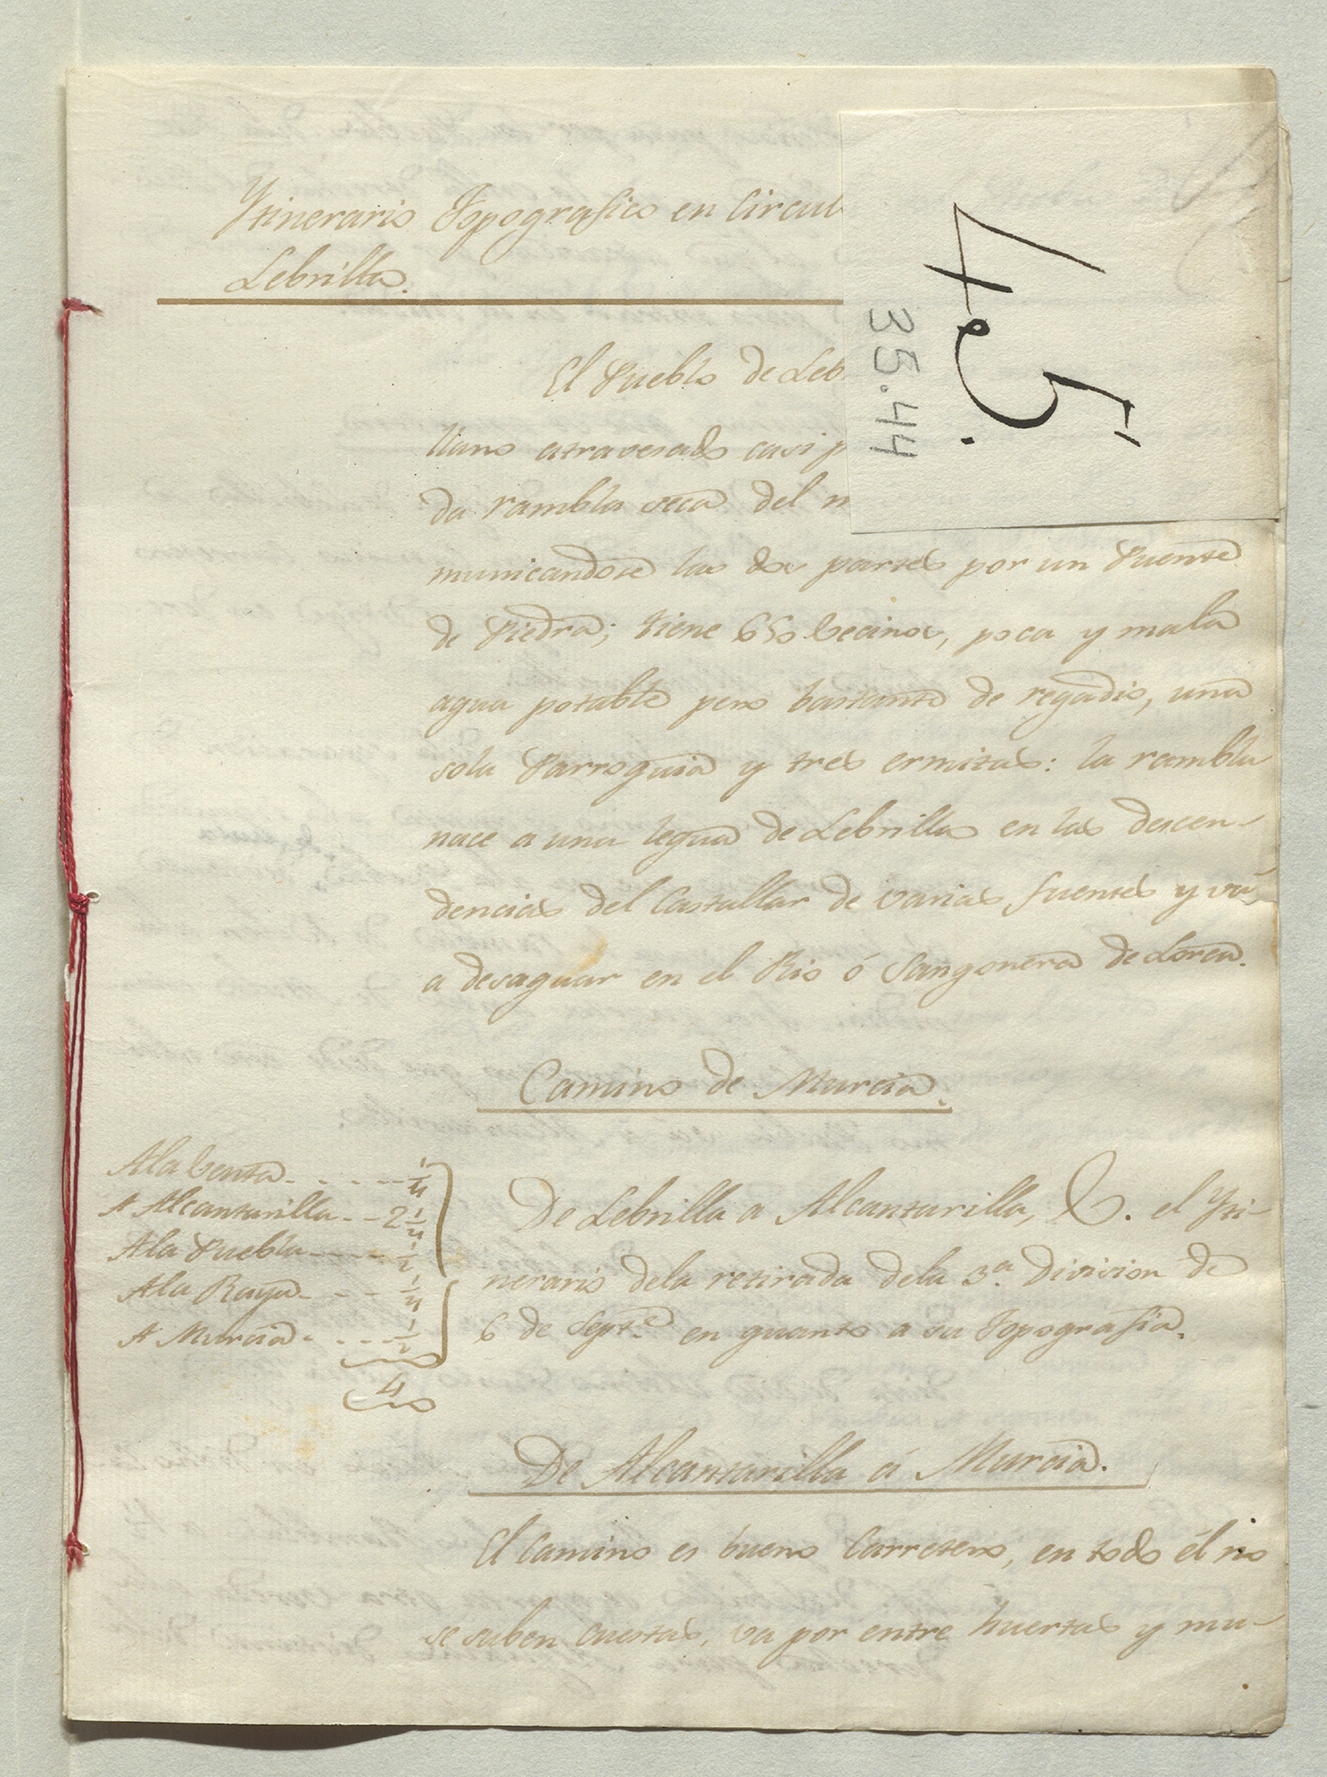 Ytinerario Topografico en Circul
Lebrilla.
4º 5.
35.44
El Pueblo de Leb
llano atravesado casi p
da rambla seca del n
municandose las dos partes por un Puente
de Piedra; tiene 650 Vecinos, poca y mala
agua potable pero bastante de regadio, una
sola Parroquia y tres ermitas: la rambla
nace a una legua de Lebrilla en las descen-
dencias del Castallar de varias fuentes y vá
a desaguar en el Rio ó Sangonera de Lorca.
Camino de Murcia.
A la Venta - - - - - 1/4
A Alcantarilla - - 2 1/4
A la Puebla - - - - 1/2
A la Raya - - - - 1/4
A Murcia - - - - 1/2
4
De Lebrilla a Alcantarilla, V. el Yti-
nerario de la retirada de la 3.ª Division de
6 de Septe. en quanto a su Topografia.
De Alcantarilla á Murcia.
El Camino es bueno Carretero, en todo él no
se suben cuestas, va por entre huertas y mu-